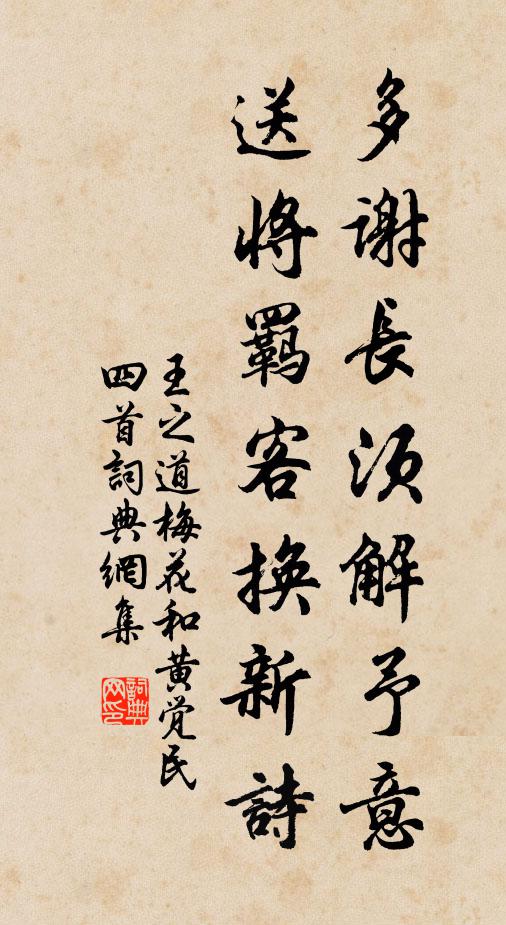 多谢長须解予意
送將羈客換新詩
王之道梅花和黄觉民
四首詞典網集
詞典
网印